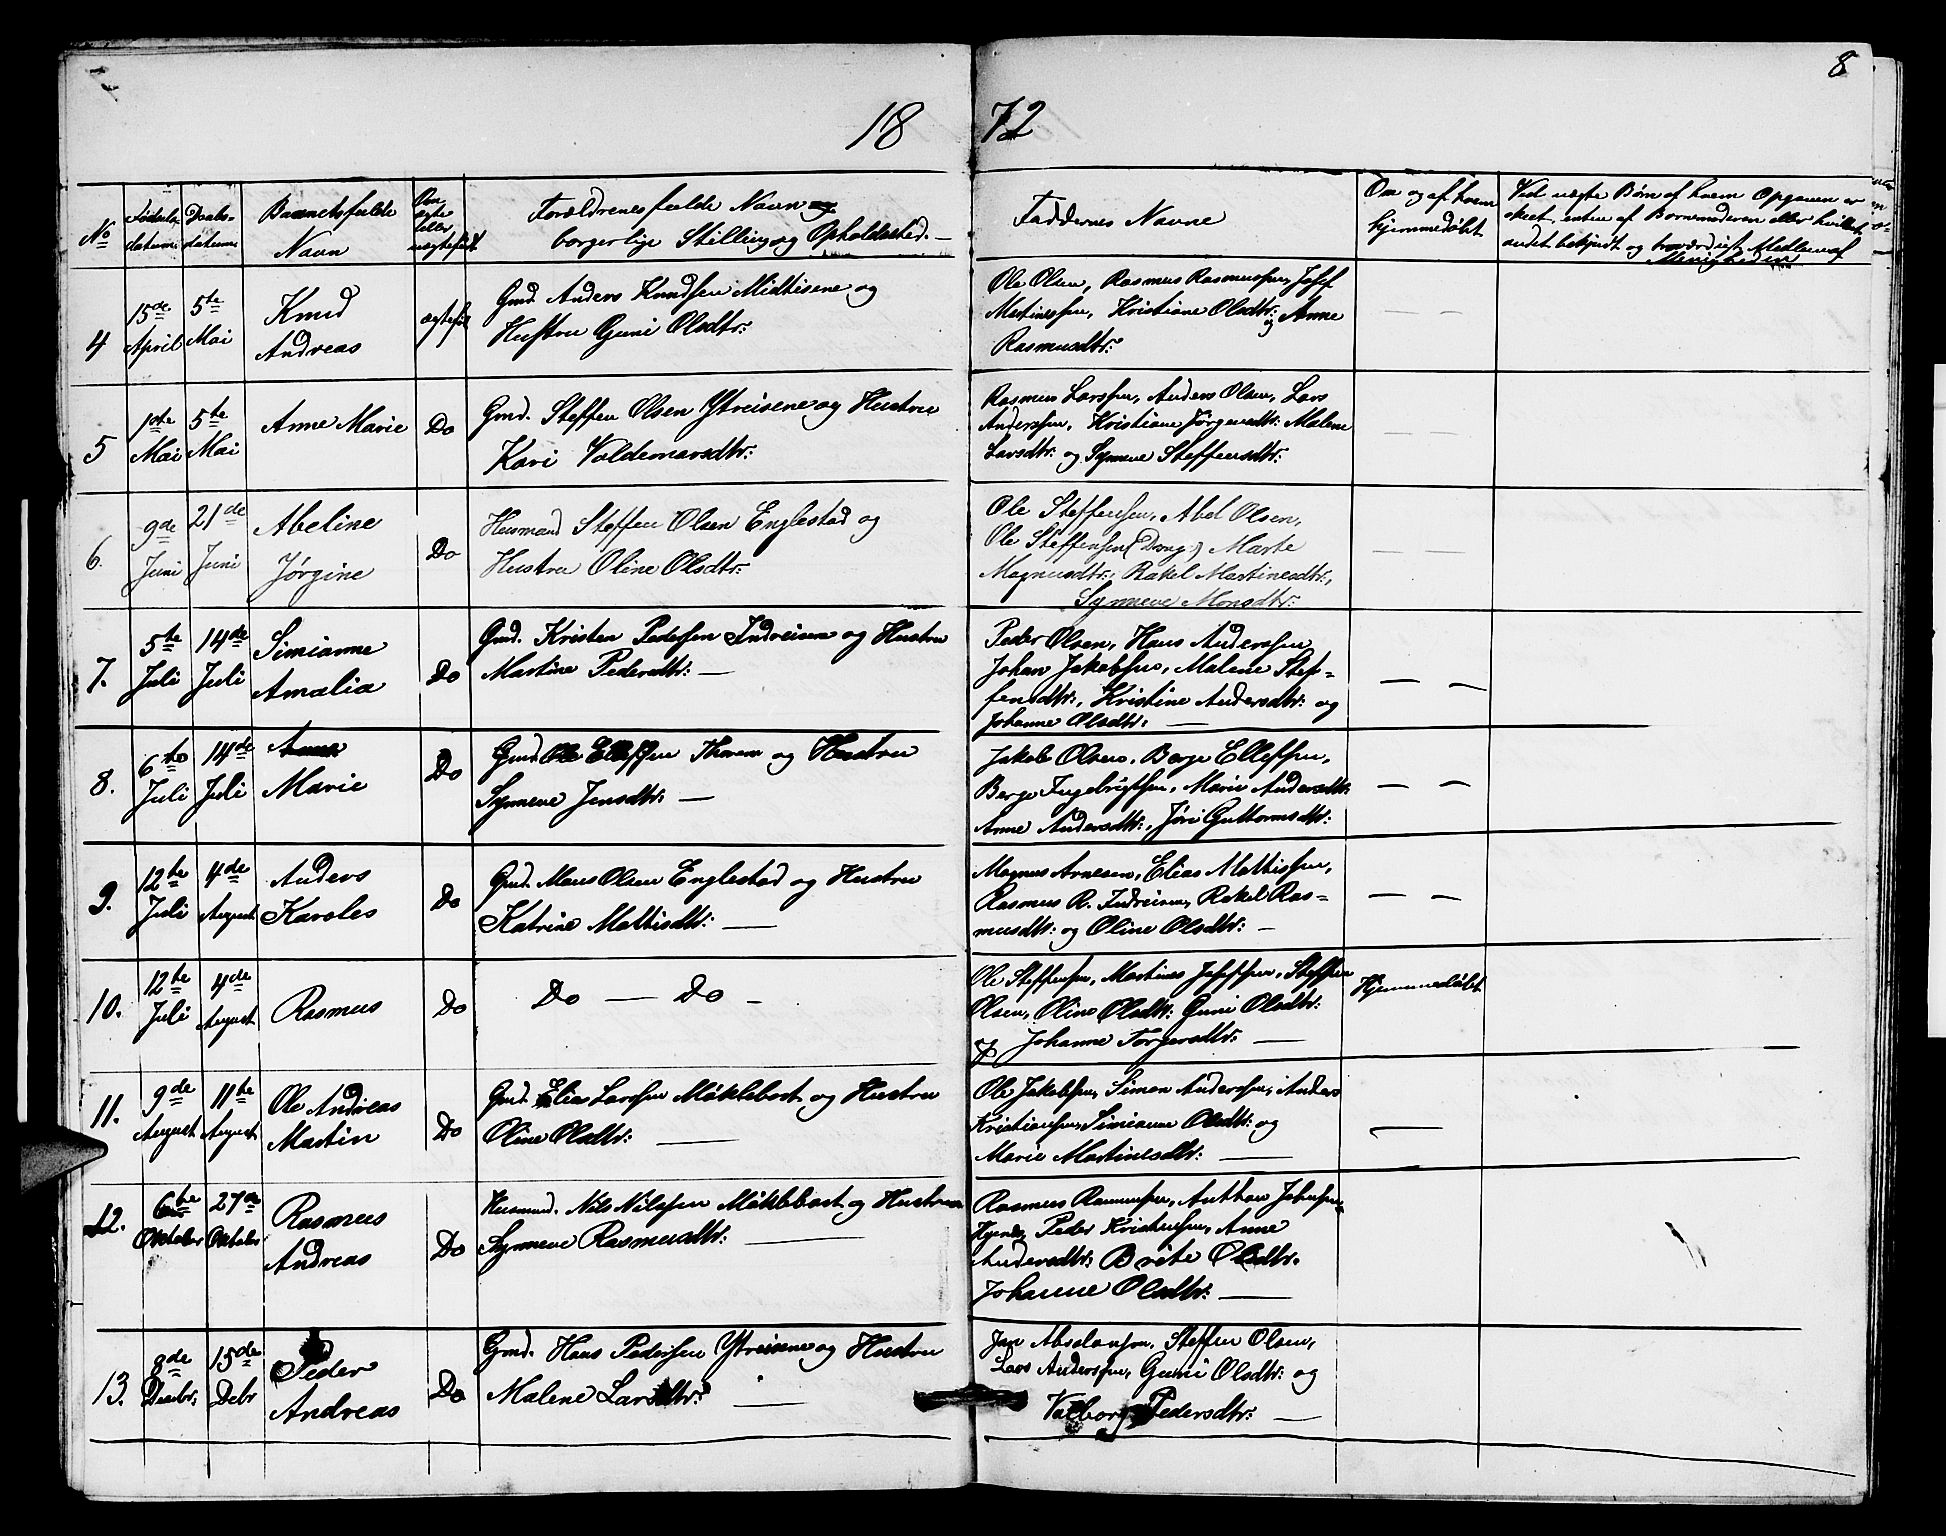 8
18 72
No
Fødsels-
datum
Daabs-
datum
Barnets fulde
Navn
Om
ægte
eller
uægtefødt
Forældrenes fulde Navn og
borgerlige Stilling og Opholdssted.
Faddernes Navne
Om og af hvem
hjemmedøbt
Ved uægte Børn af hvem Opgaven er
skeet, enten af Barnemoderen eller hvilket
andet bekjendt og troværdigt Medlem af
Menigheden
4
15de
April
5te
Mai
Knud
Andreas
ægtefød
Gmd. Anders Knudsen Midtisene og
Hustru Guni Olsdtr:
Ole Olsen, Rasmus Rasmussen, Josef
Martinssen, Kristiane Olsdtr: og Anne
Rasmusdtr:
5
1ste
Mai
5te
Mai
Anne Marie
Do
Gmd. Steffen Olsen Ytreisene og Hustru
Kari Valdemarsdtr:
Rasmus Larssen, Anders Olsen, Lars
Anderssen, Kristiane Jørgensdtr: Malene
Larsdtr: og Synneve Steffensdtr:
6.
9de
Juni
21de
Juni
Abeline
Jørgine
Do
Husmand Steffen Olsen Englestad og
Hustru Oline Olsdtr:
Ole Steffensen, Abel Olsen,
Ole Steffensen (Dreng:) Marte
Magnusdtr: Rakel Martinesdtr:,
Synneve Monsdtr:
7.
5te
Juli
14de
Juli
Simianne
Amalia
Do
Gmd. Kristen Pedersen Indreisene og Hustru
Martine Pedersdtr: —
Peder Olsen, Hans Anderssen,
Johan Jakobsen, Malene Stef-
fensdtr:, Kristine Andersdtr: og
Johanne Olsdtr: —
8.
6te
Juli
14de
Juli
Anne
Marie
Do
Gmd. Ole Ellefsen og Hustru
Synneve Jensdtr: —
Jakob Olsen, Berge Ellefsen,
Berge Ingebrigtsen, Marie Andersdtr:
Anne Andersdtr:, Jøri Guttormsdtr:
9.
12te
Juli
4de
August
Anders
Karoles
Do
Gmd. Mons Olsen Englestad og Hustru
Katrine Mattisdtr: —
Magnus Arnesen, Elias Mattissen,
Rasmus R. Indreisene, Rakel Ras-
musdtr: og Oline Olsdtr: —
10.
12te
Juli
4de
August
Rasmus
Do
Do — Do —
Ole Steffensen, Martines Josefsen, Steffen
Olsen, Oline Olsdtr: Guni Olsdtr:
og Johanne Torgersdtr: —
Hjemmedøbt
11.
9de
August
11te
August
Ole Andreas
Martin
Do
Gmd. Elias Larssen Måklebost og Hustru
Oline Olsdtr: —
Ole Jakobsen, Simon Anderssen, Anders
Kristianssen, Simianne Olsdtr: og
Marie Martinesdtr: —
12.
6te
Oktober
27de
Oktober
Rasmus
Andreas
Do
Husmd. Nils Nilssen Måklebost og Hustru
Synneve Rasmusdtr: —
Rasmus Rasmussen, Anthon Johnsen
Peder Kristensen, Anne
Andersdtr: Brite Olsdtr.
Johanne Olsdtr: —
13.
8de
Decbr:
15de
Debr
Peder
Andreas
Do
Gmd. Hans Pedersen Ytreisene og Hustru
Malene Larsdtr: —
Jan Absalonsen, Steffen Olsen,
Lars Anderssen, Guni Olsdtr: og
Valborg Pedersdtr: —